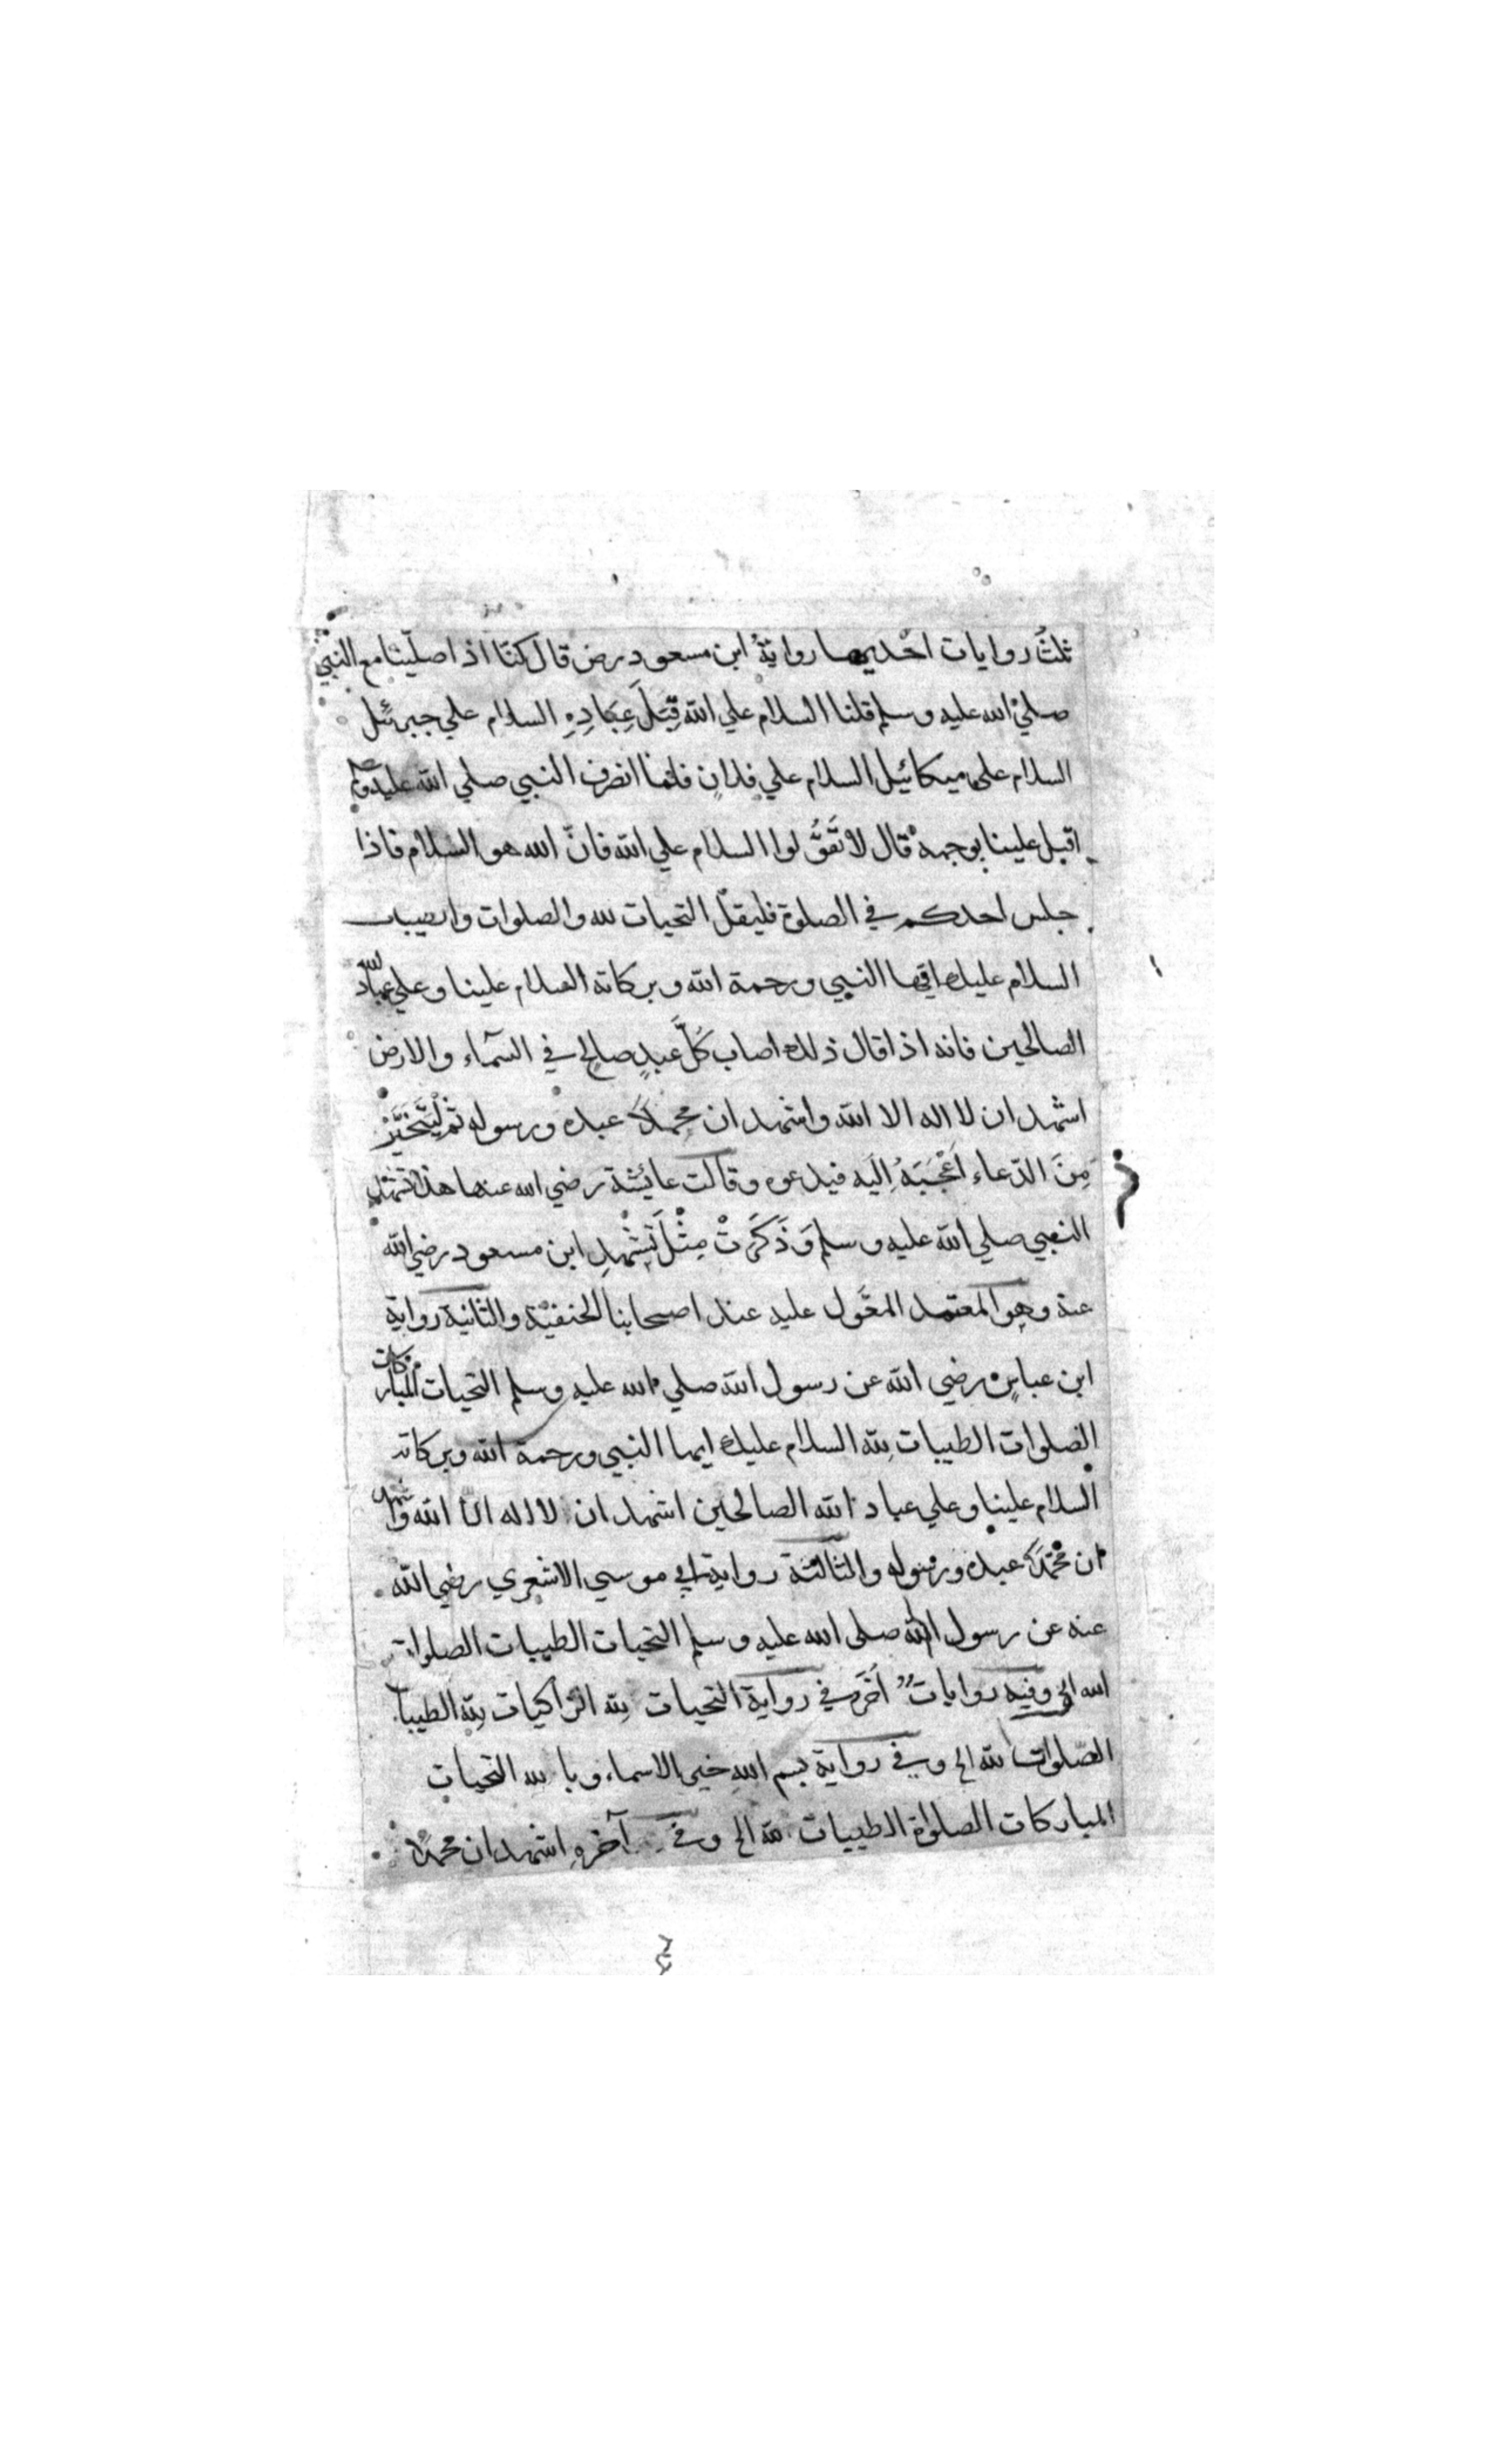 ثلثُ روايات احديها رواية ابن مسعود رض قال كنّا اذا صلّينا مع النبيّ
صلي الله عليه وسلم قلنا السلام علي الله قِبَلَ عِبَادِهِ السلام علي جبرئيل
السلام على ميكائيل السلام علي فلانٍ فلمّا انصرف النبي صلي الله عليه وسلم
اقبل علينا بوجهه قال لا تَقُولوا السلام علي الله فانّ الله هو السّلام فاذا
جلس احدكم في الصلوة فليقل التحيات لله والصلوات والطيبات
السلام عليك ايها النبي ورحمة الله وبركاته السلام علينا وعلي عباد الله
الصالحين فانه اذا قال ذلك اصاب كُلَّ عبدٍ صالحٍ في السّمآء والارض
اشهد ان لا اله الا الله واشهد ان محمدًا عبده ورسوله ثم ليَتَخَيَّرْ
مِنَ الدّعاء اَعْجَبَهُ اِلَيه فيدعوه وقالت عايشة رضي الله عنها هذا تشهّد
النبي صلي الله عليه وسلم وَذَكَرَتْ مِثْلَ تَشَهُّدِ ابن مسعود رضي الله
عنه وهو المعتمد المعَّول عليه عند اصحابنا الحنفيّة والثانية رواية
ابن عباسٍ رضي الله عن رسول الله صلي الله عليه وسلم التحيات المباركات
الصلوات الطيبات لله السلام عليك ايها النبي ورحمة الله وبركاته
السلام علينا وعلي عباد الله الصالحين اشهد ان لا اله الّا الله واشهد
ان محمّدًا عبده ورسوله والثالثة رواية ابي موسي الاشعري رضي الله
عنه عن رسول الله صلى الله عليه وسلم التحيات الطيبات الصلوات
لله الخ وفيه روايات اُخَر في رواية التحيات لله الزاكيات لله الطيبات
الصّلوات لله الخ وفي رواية بسم اللهِ خير الاسماء وبالله التحيات
المباركات الصلواة الطيبات لله الخ وفي آخرهِ اشهد ان محمدًا